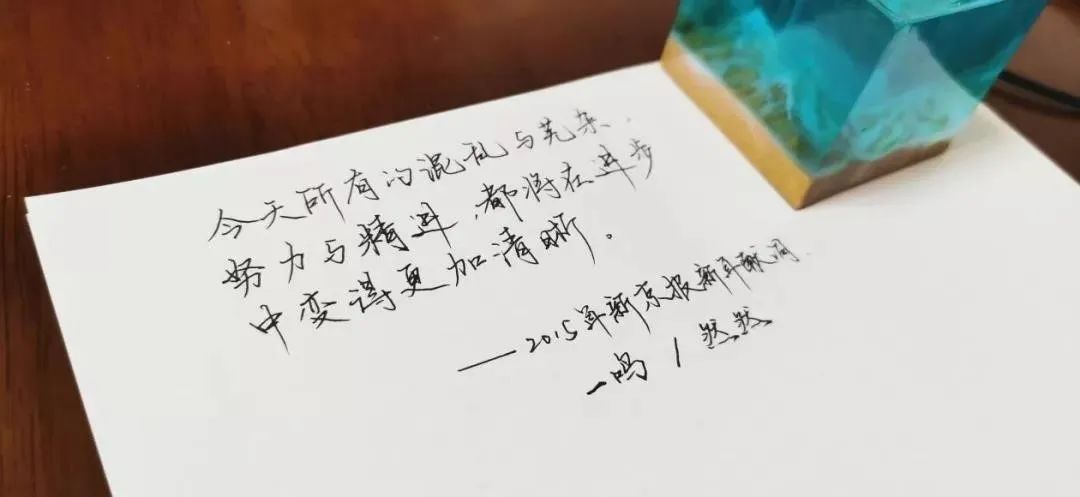 今天所有的混乱与芜杂、
努力与精进，都将在进步
中变得更加清晰。
——2015年新京报新年献词
一鸣 / 然然